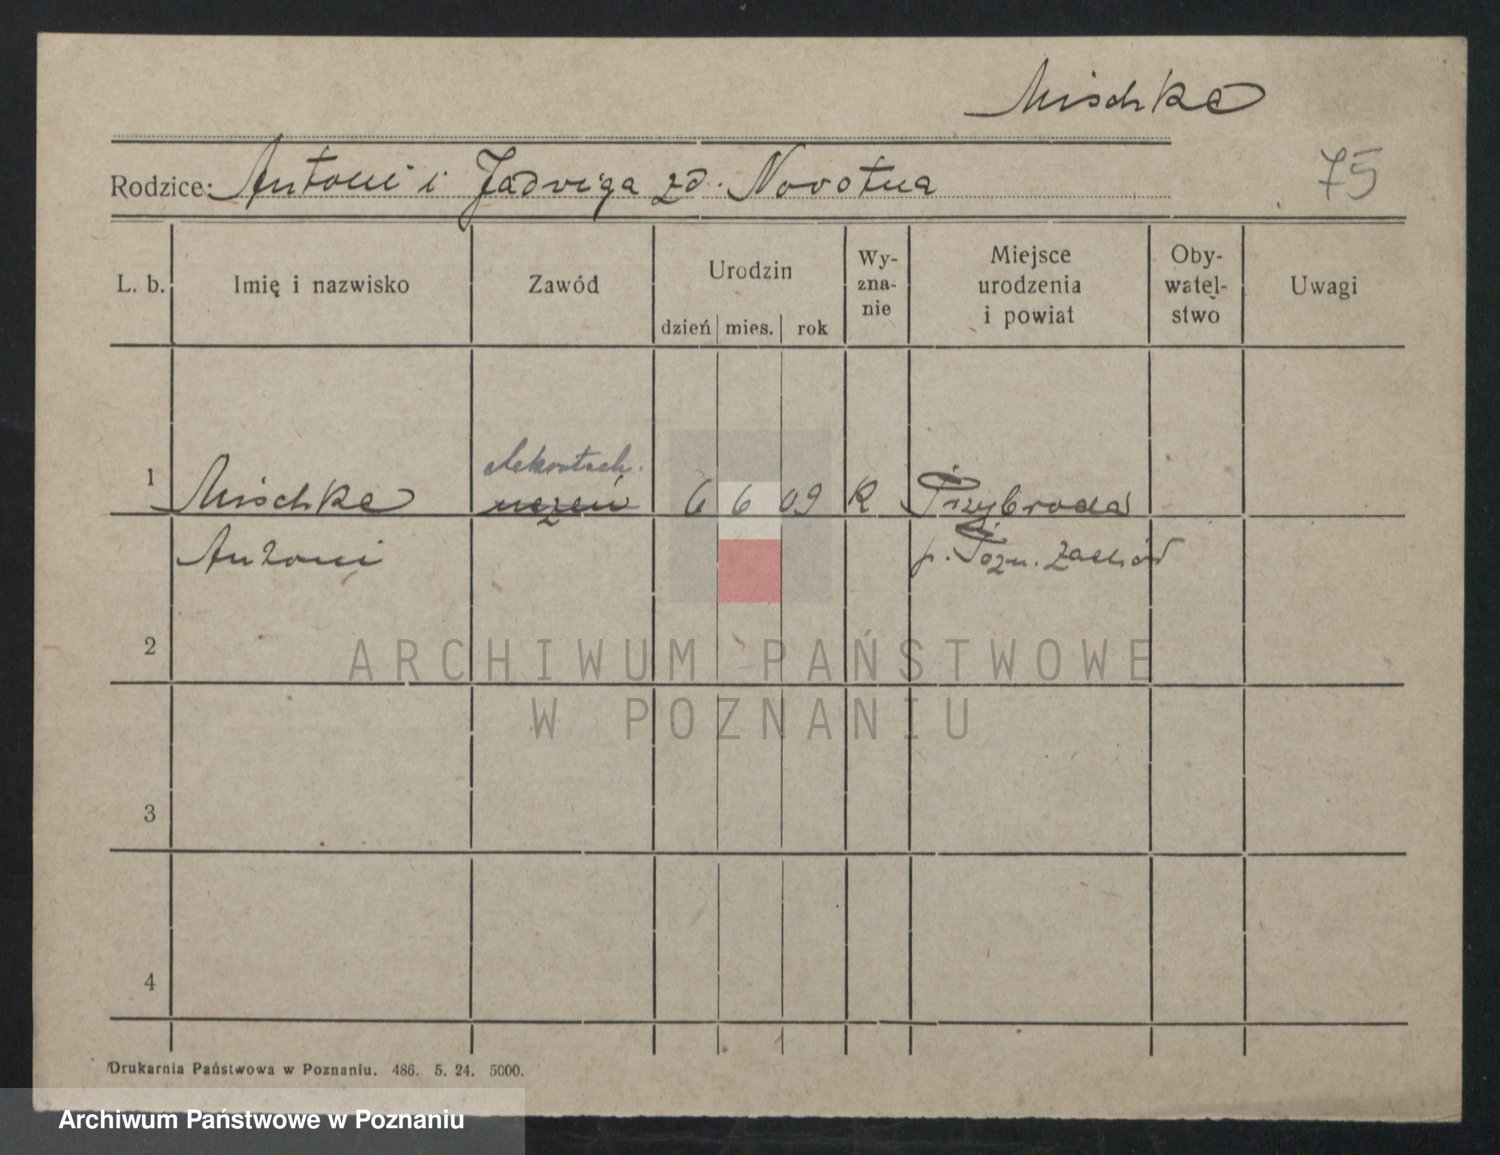 Mischke
Rodzice: Antoni i Jadwiga zd. Novotna
75
L. b.
Imię i nazwisko
Zawód
Urodzin
dzień mies. rok
Wy-
zna-
nie
Miejsce
urodzenia
i powiat
Oby-
watel-
stwo
Uwagi
1 Mischke uczeń 6 6 09 R Przybroda
Antoni p. Pozn. Zachód
2
3
4
ARCHIWUM PAŃSTWOWE
W POZNANIU
Drukarnia Państwowa w Poznaniu. 486. 5. 24. 5000.
Archiwum Państwowe w Poznaniu